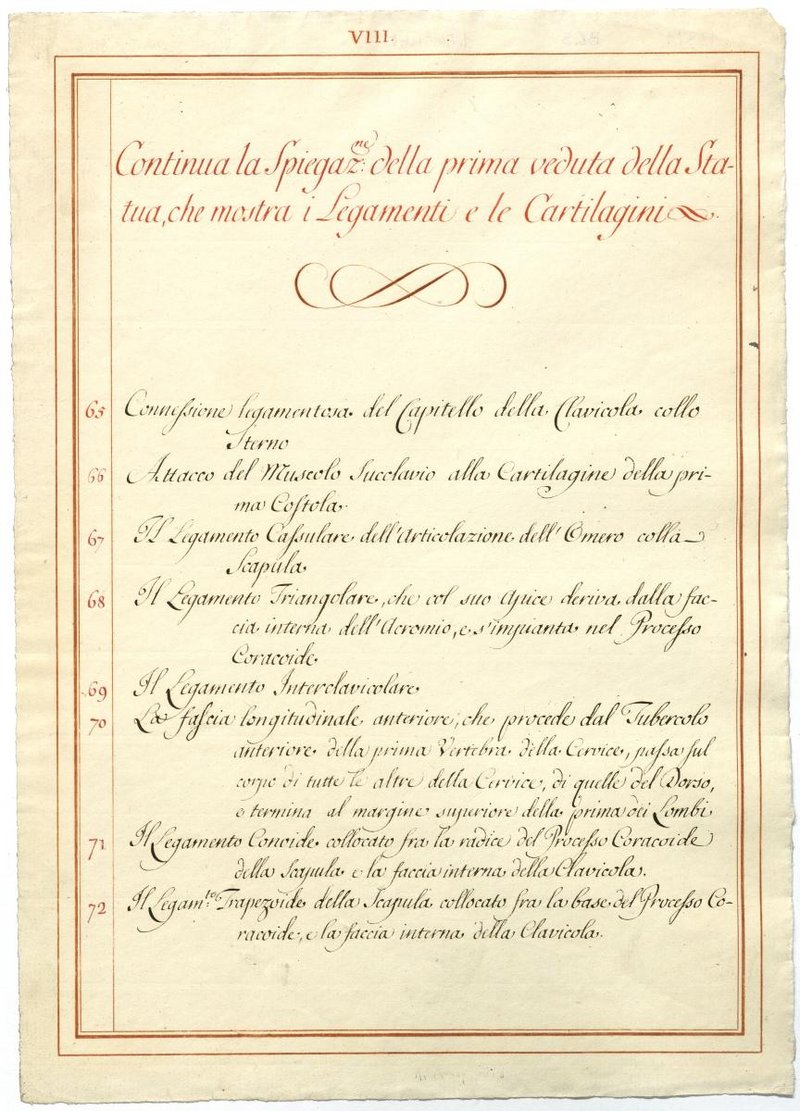 VIII.
Continua la Spiegaz.ne della prima veduta della Sta-
tua, che mostra i Legamenti e le Cartilagini
65 Connessione legamentosa del Capitello della Clavicola collo
Sterno
66 Attacco del Muscolo Succlavio alla Cartilagine della pri-
ma Costola
67 Il Legamento Cassulare dell'Articolazione dell'Omero colla
Scapula
68 Il Legamento Triangolare, che col suo Apice deriva dalla fac-
cia interna dell'Acromio, e s'impianta nel Processo
Coracoide
69 Il Legamento Interclavicolare
70 La fascia longitudinale anteriore, che procede dal Tubercolo
anteriore della prima Vertebra della Cervice, passa sul
corpo di tutte le altre della Cervice, di quelle del Dorso,
e termina al margine superiore della prima dei Lombi
71 Il Legamento Conoide collocato fra la radice del Processo Coracoide
della Scapula e la faccia interna della Clavicola.
72 Il Legam.to Trapezoide della Scapula collocato fra la base del Processo Co-
racoide, e la faccia interna della Clavicola.